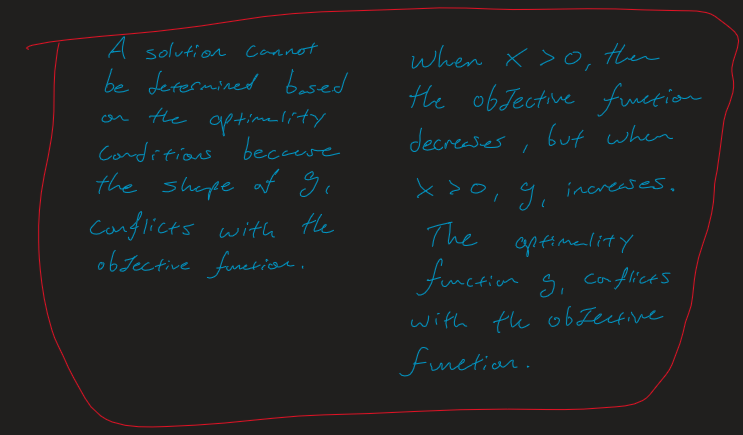 A solution cannot
be determined based
on the optimality
conditions because
the shape of g₁
conflicts with the
objective function.
When x > 0, then
the objective function
decreases, but when
x > 0, g₁ increases.
The optimality
function g₁ conflicts
with the objective
function.